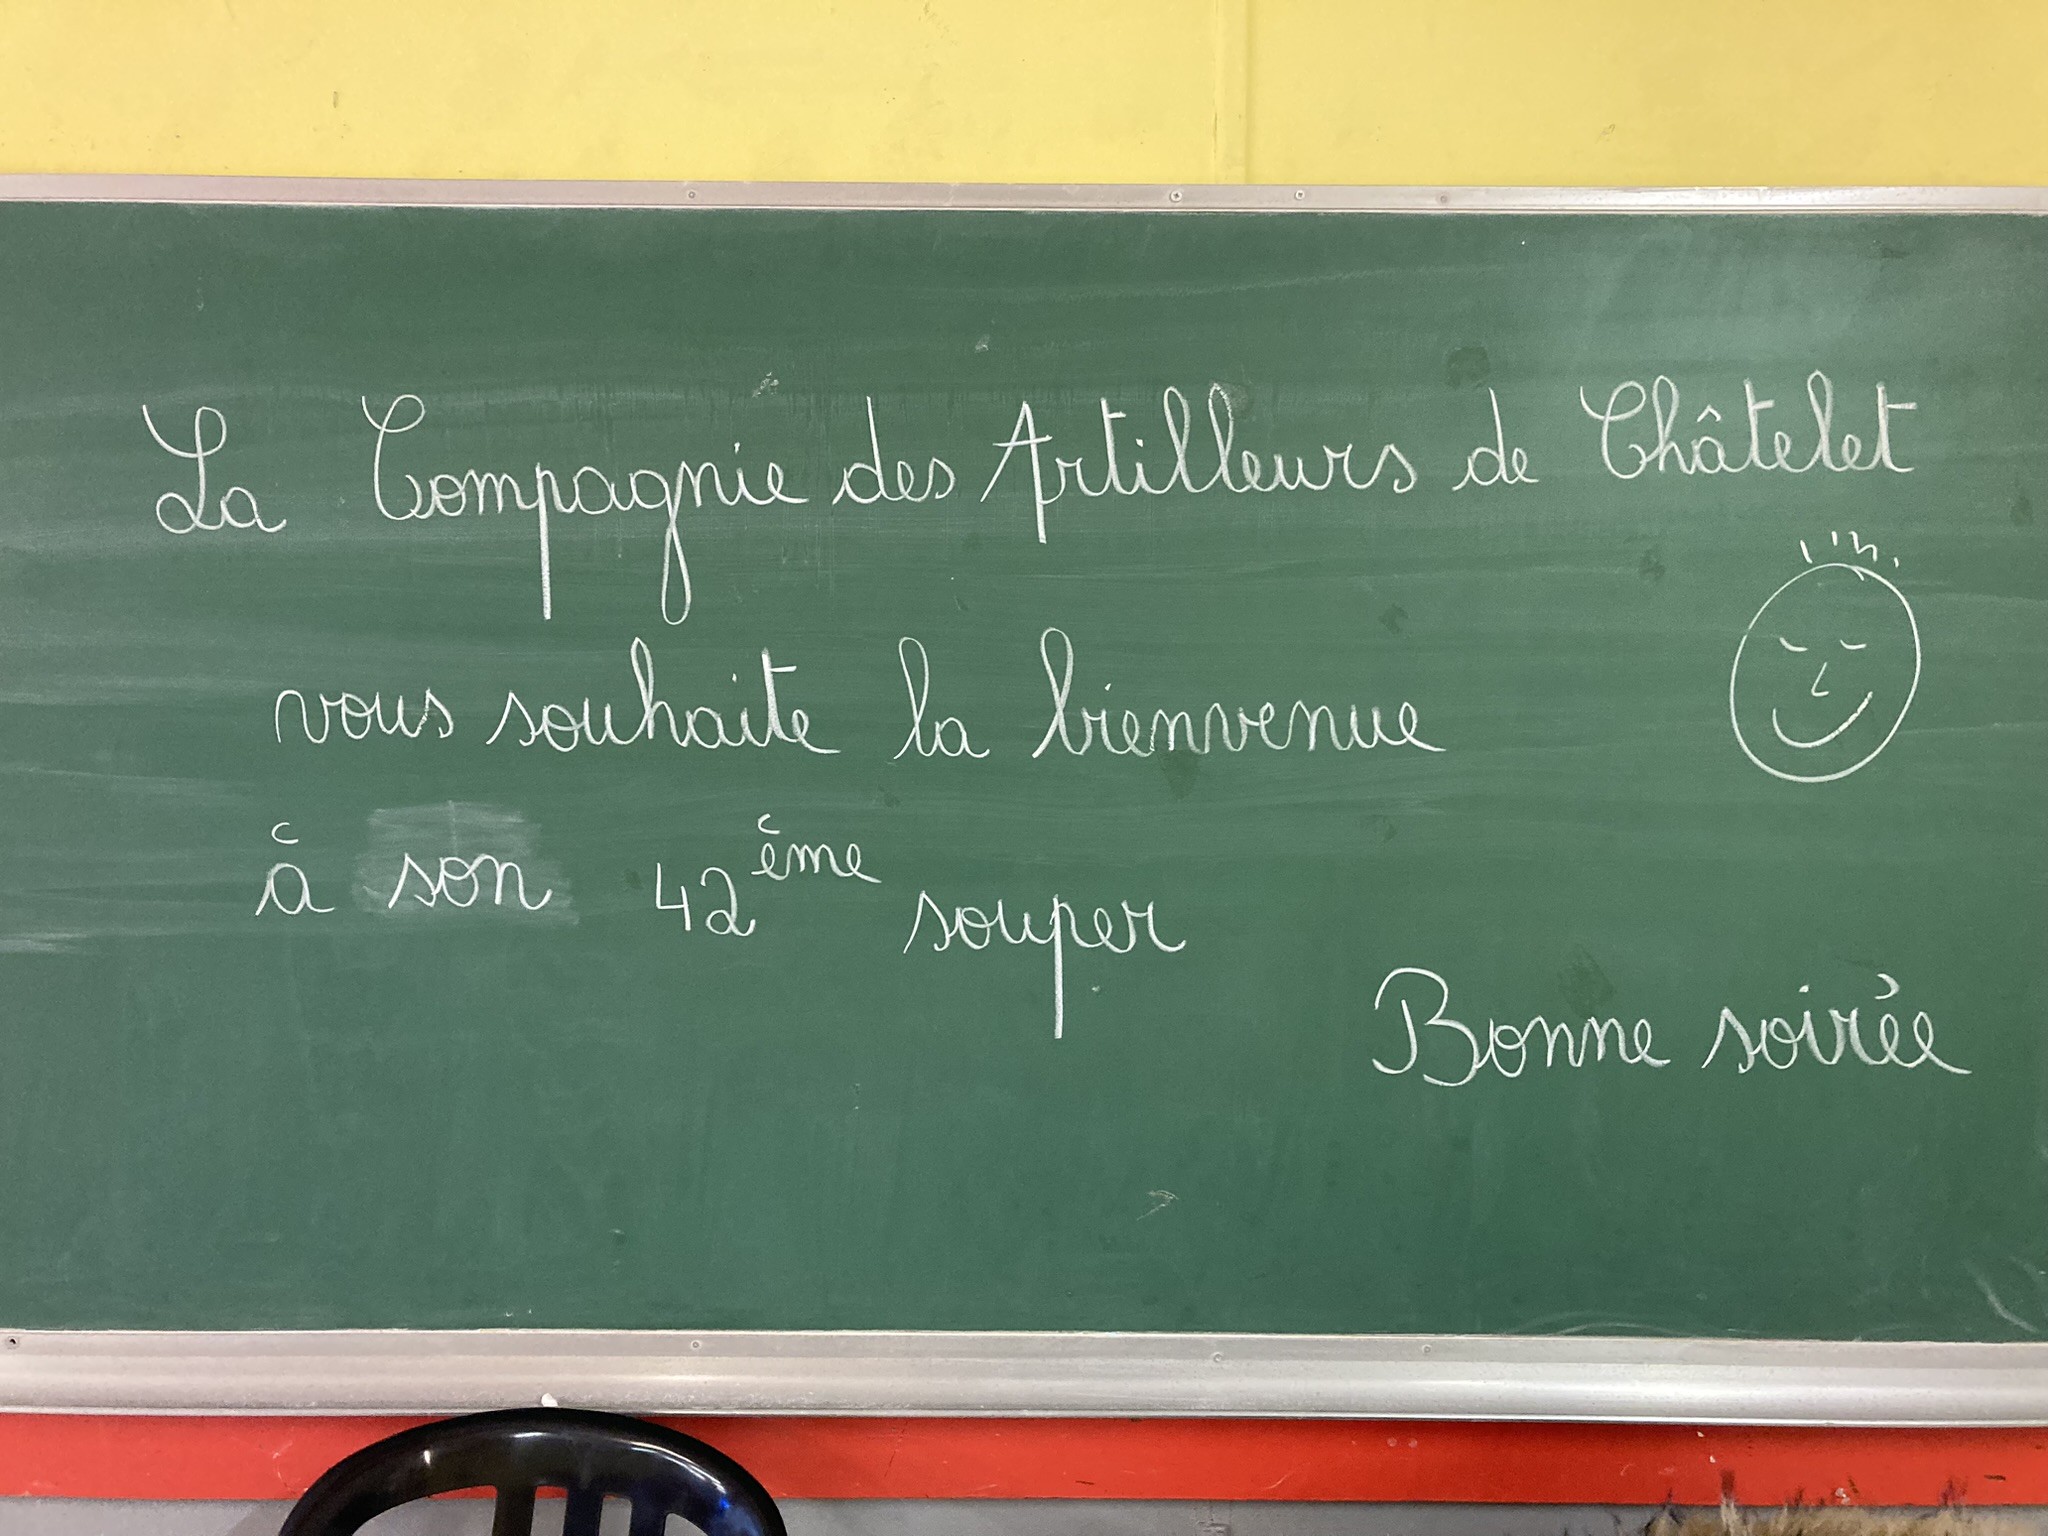 La Compagnie des Artilleurs de Châtelet
vous souhaite la bienvenue
à son 42ème souper
Bonne soirée